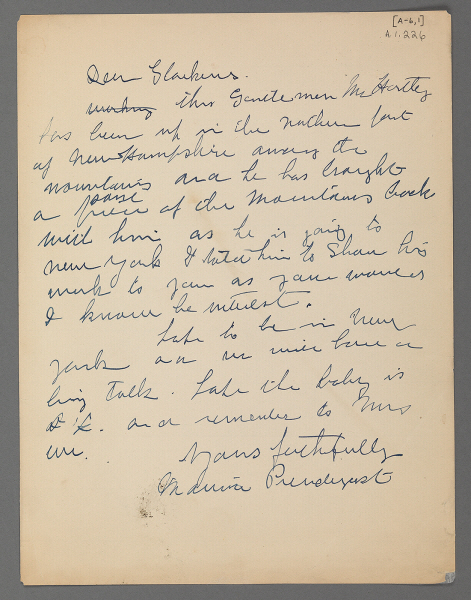 [A-6,1]
A.1.226
Dear Glackens.
this Gentlemen Mr Hartley
has been up in the northern part
of New Hampshire among the
mountains and he has brought
a piece of the mountains back
with him as he is going to
New York I told him to show his
work to you as you would
I know be interest.
hope to be in New
york and we will have a
long talk. hope the baby is
O'K. and remember to Mrs.
Yours faithfully
Maurice Prendergast